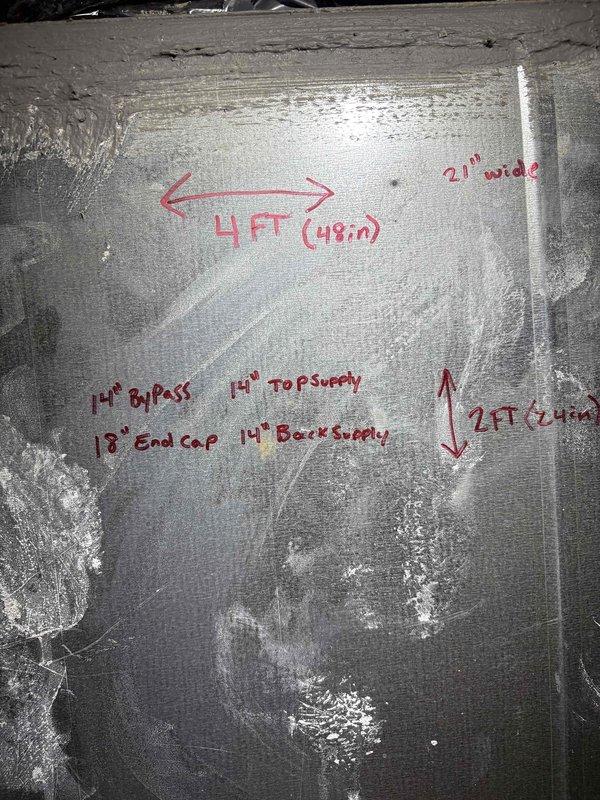 21" wide
4 FT (48in)
14" ByPass 14" Top Supply
18" End Cap 14" Back Supply
2 FT (24in)